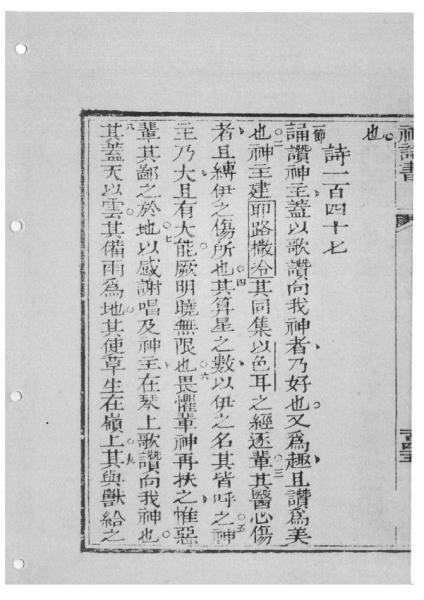 神詩書
一百四五
也
詩一百四十七
節誦讚神主蓋以歌讚向我神者乃好也又爲趣且讚爲美
二也神主建耶路撒冷其同集以色耳之經逐輩三其醫心傷
者且縛伊之傷所也四其算星之數以伊之名其皆呼之五神
主乃大且有大能厥明曉無限也六畏懼輩神再扶之惟惡
輩其鄙之於地七以感謝唱及神主在琴上歌讚向我神也
八其蓋天以雲其備雨爲地其使草生在嶺上九其與獸給之